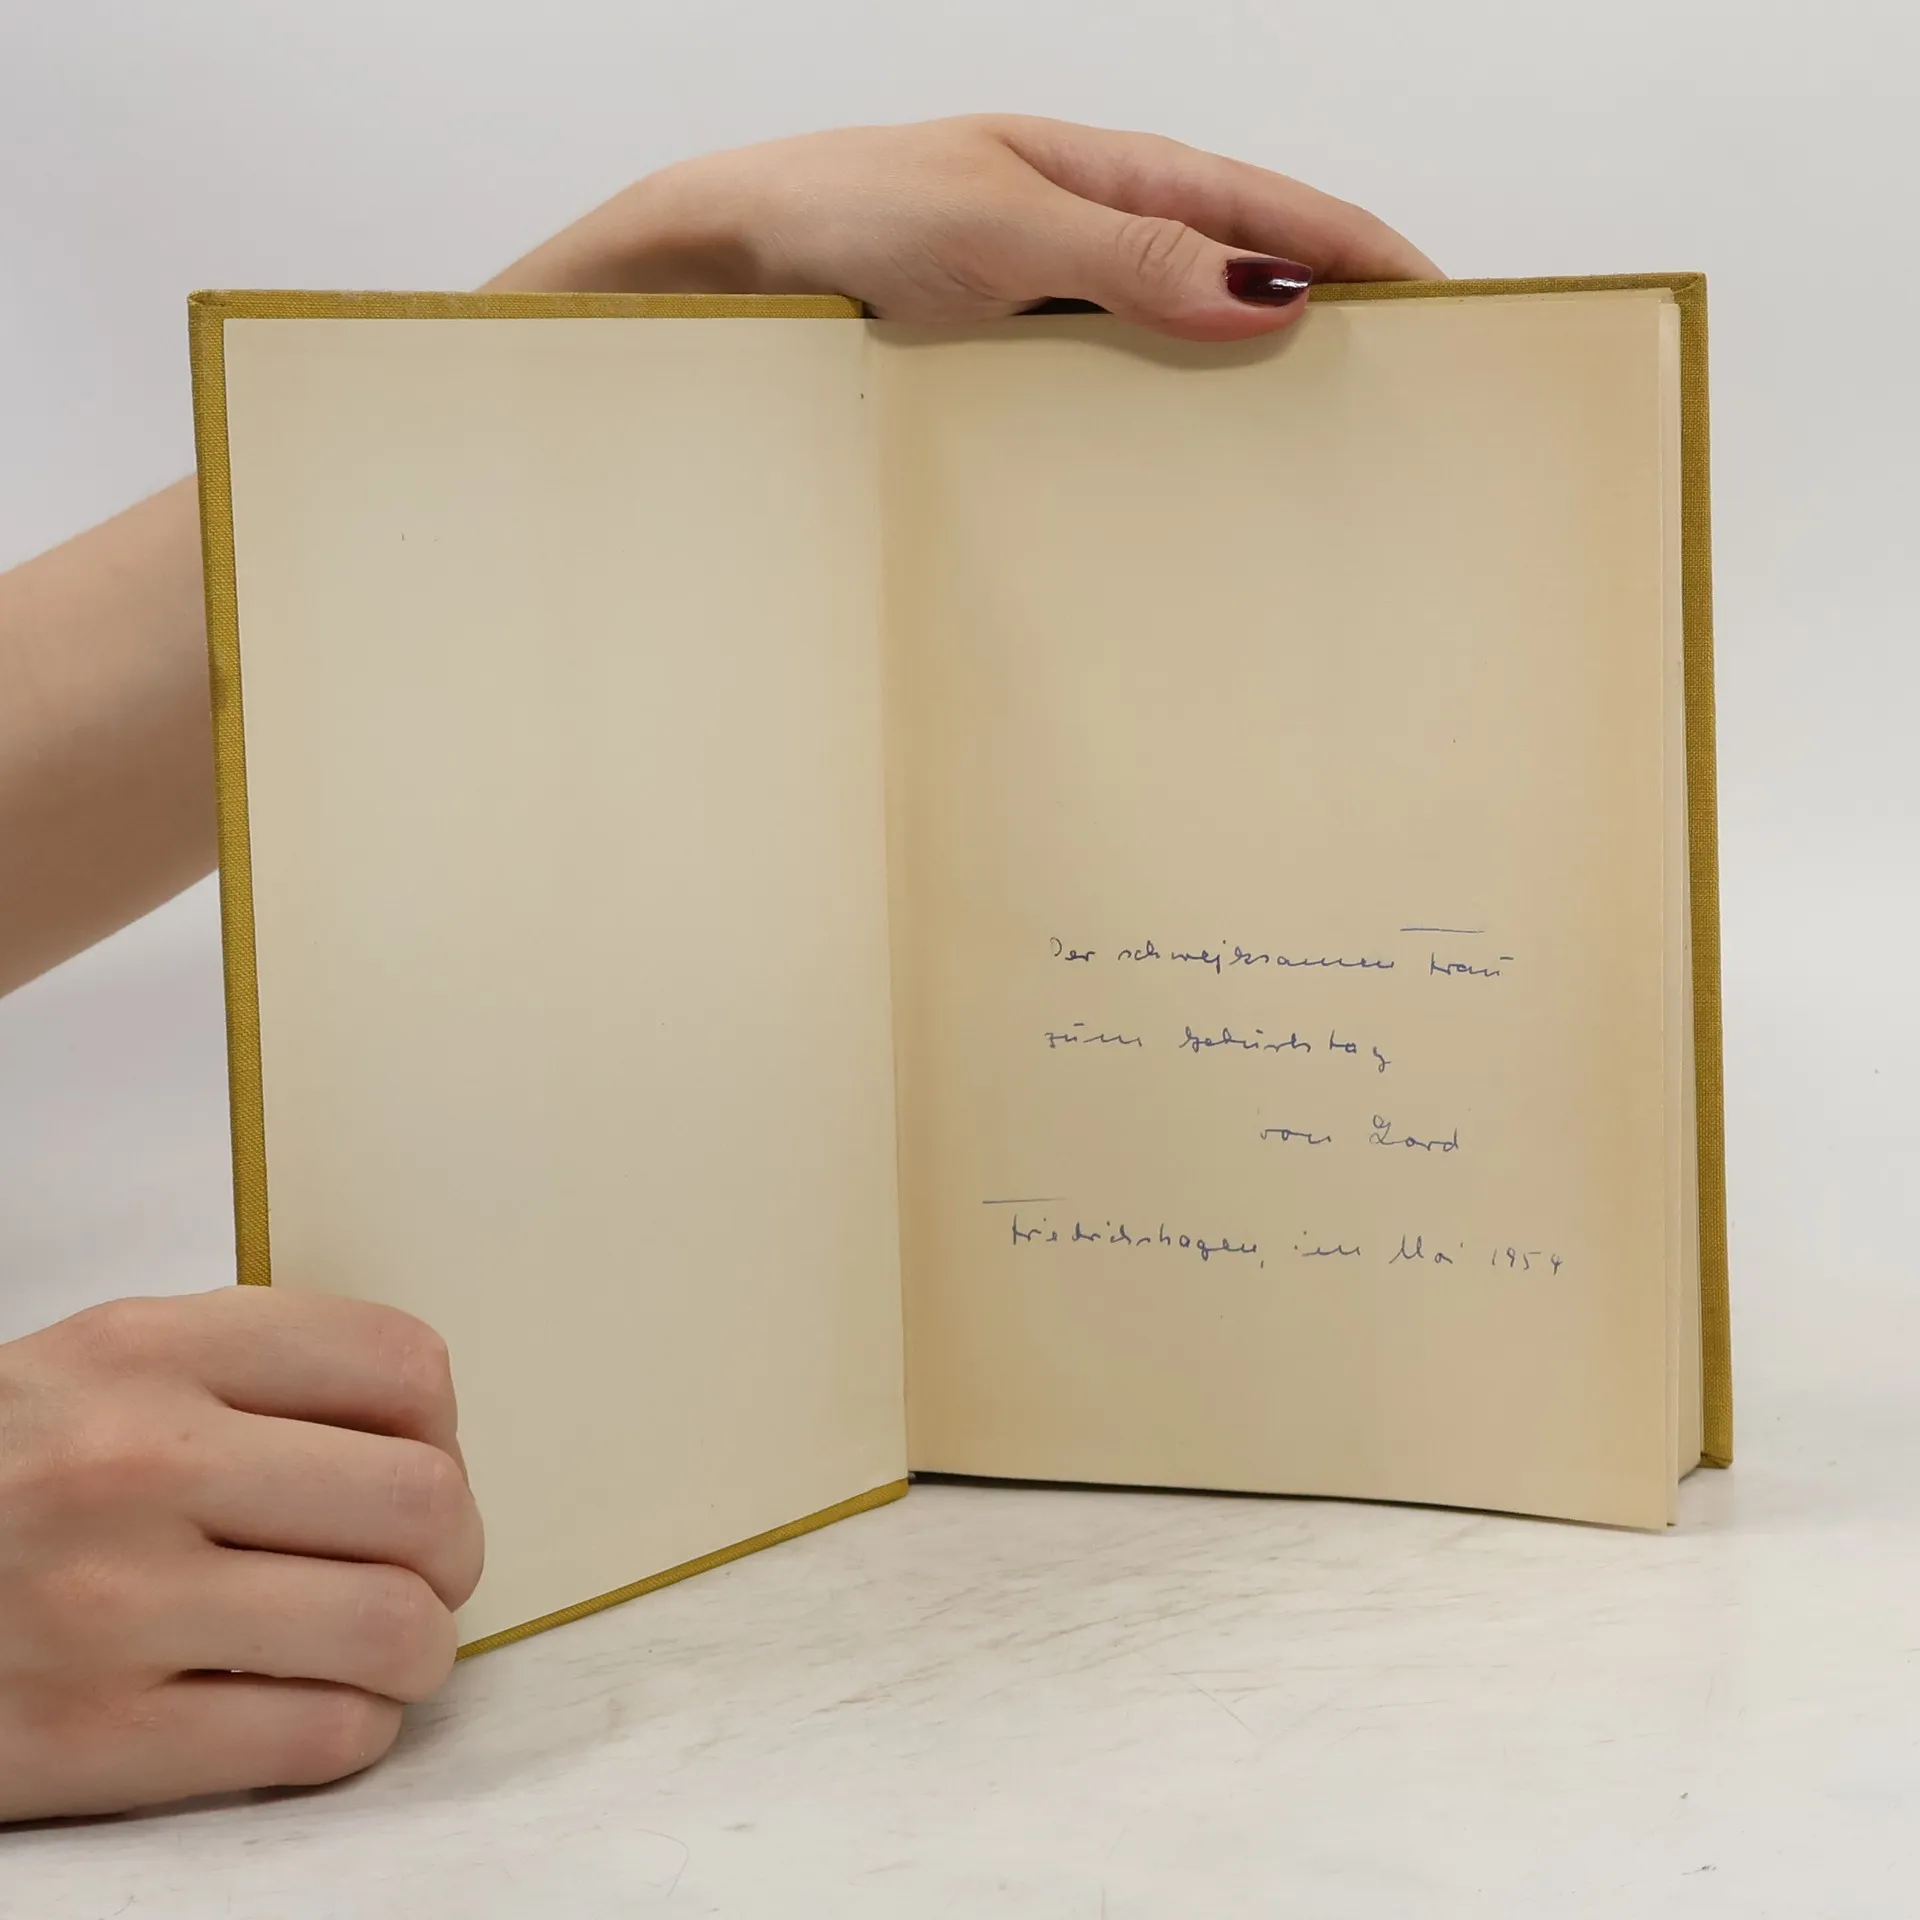 Der schwejksamen Frau
zum Geburtstag
von Gard
Friedrichshagen, im Mai 1954